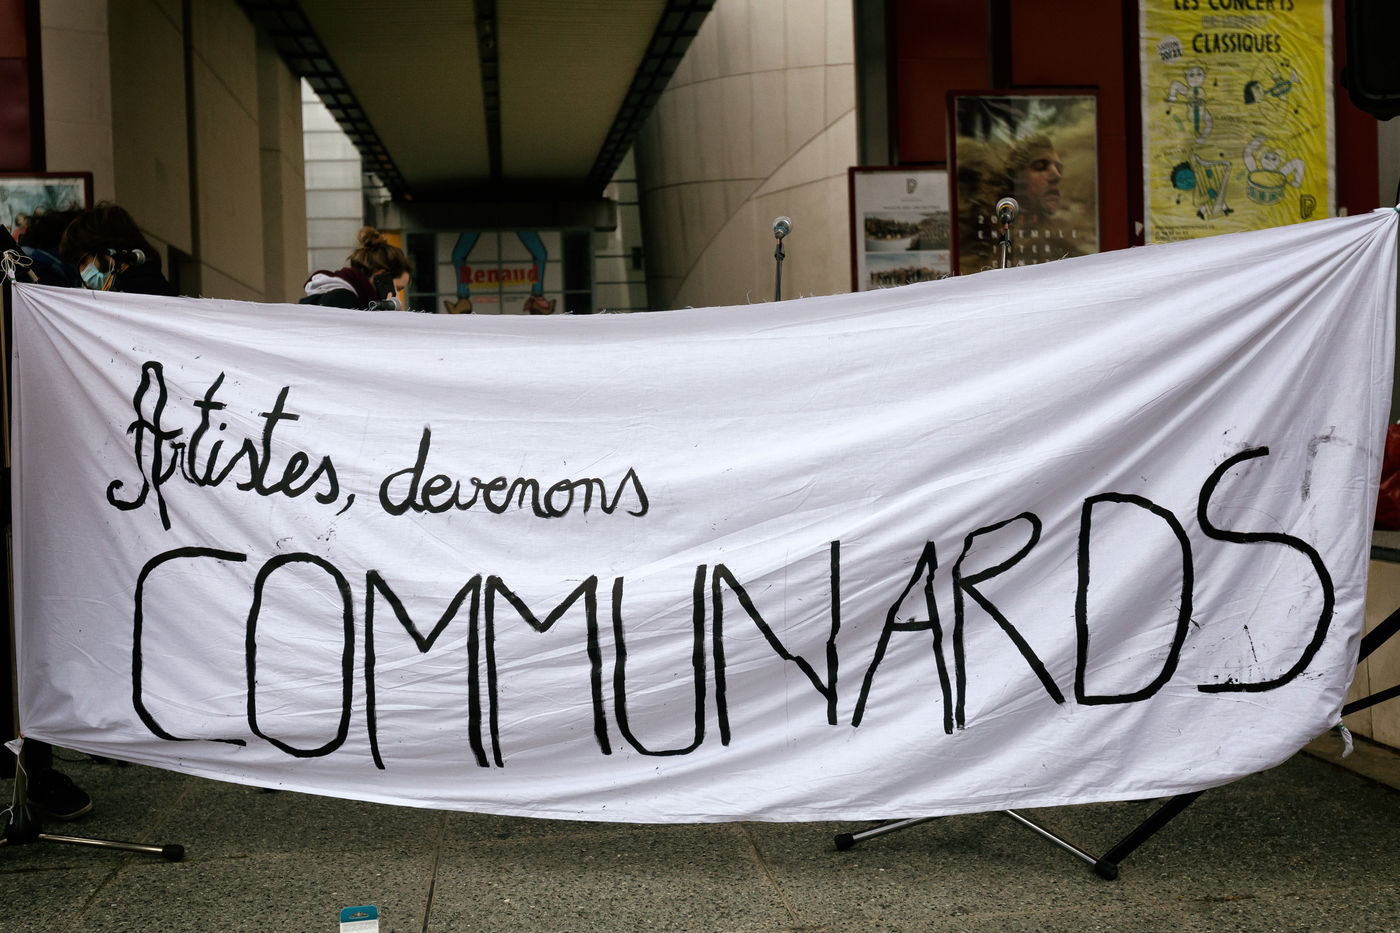 LES CONCERTS
CLASSIQUES
Renaud
ENSEMBLE
Artistes, devenons
COMMUNARDS